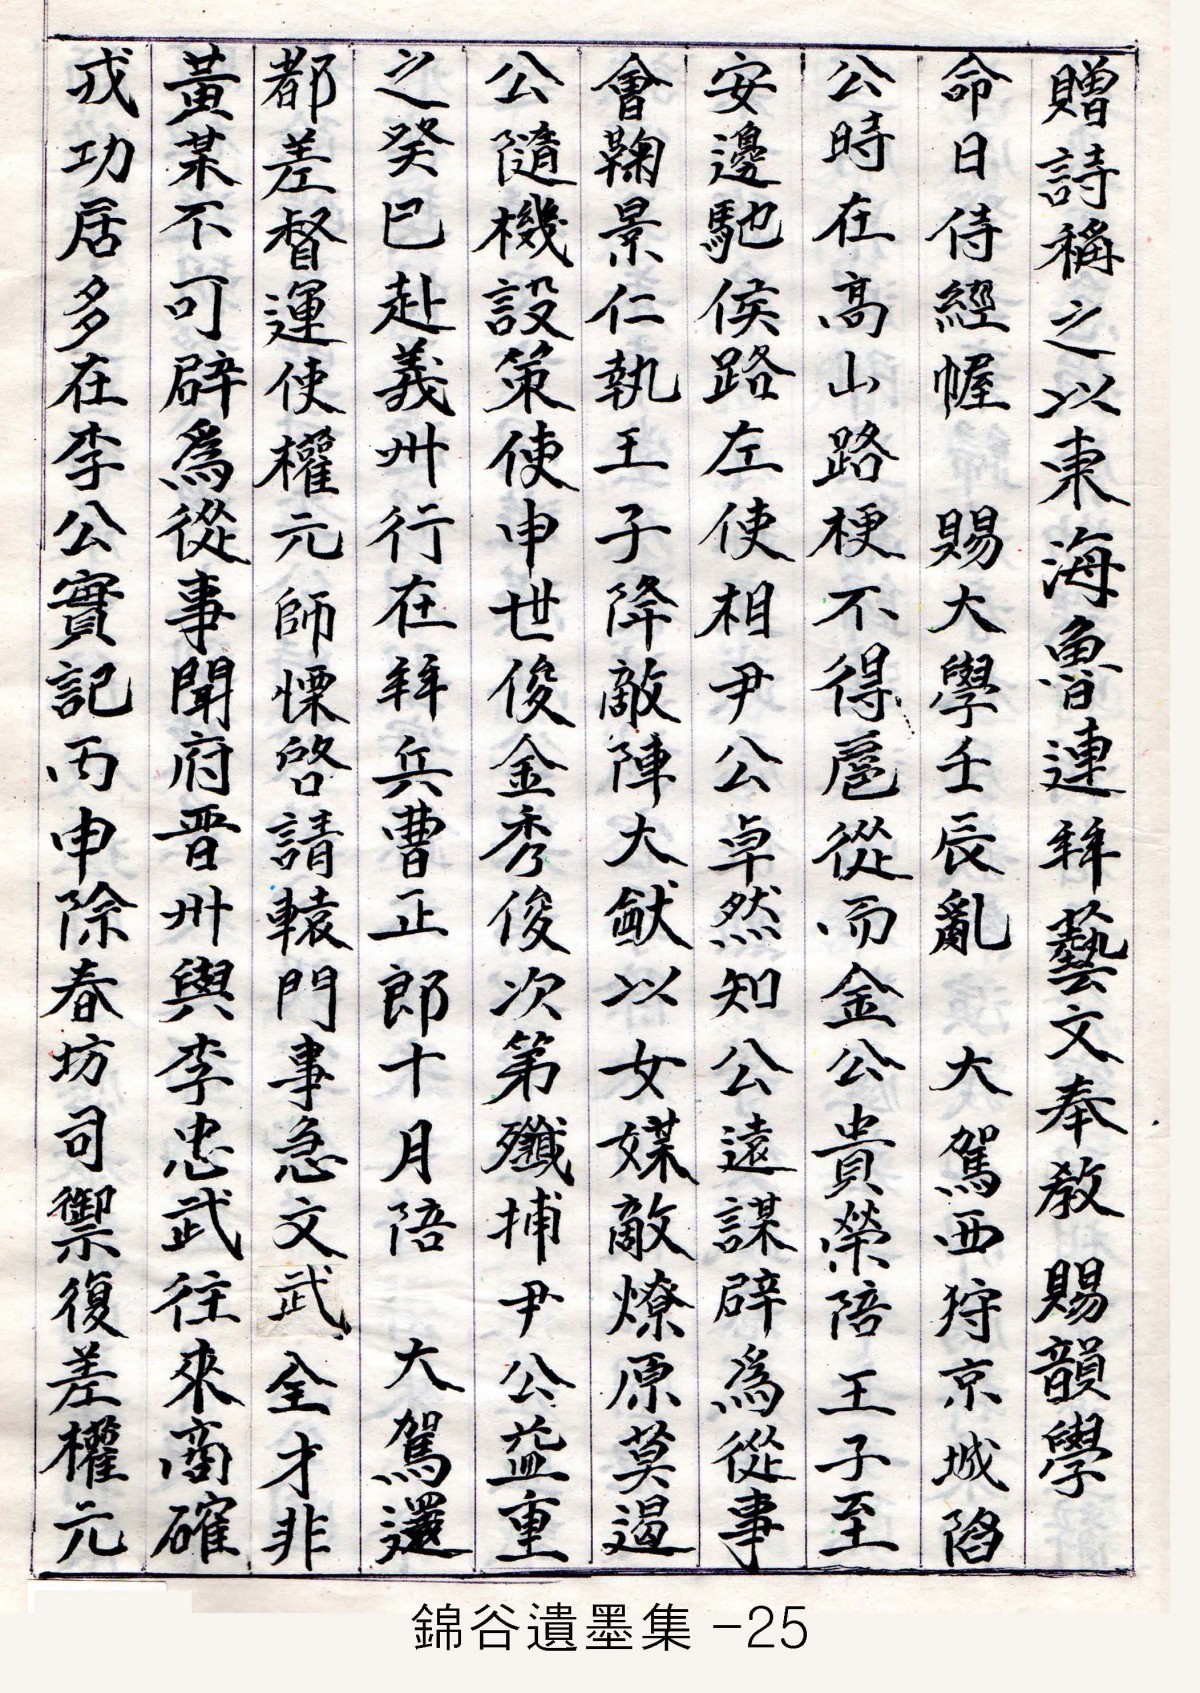 贈詩稱之以東海魯連拜藝文奉敎 賜韻學
命日侍經幄 賜大學壬辰亂 大駕西狩京城陷
公時在高山路梗不得扈從而金公貴榮陪王子至
安邊馳侯路左使相尹公卓然知公遠謀辟爲從事
會鞠景仁執王子降敵陣大猷以女媒敵燎原莫遏
公隨機設策使申世俊金秀俊次第殲捕尹公益重
之癸巳赴義州行在拜兵曹正郎十月陪 大駕還
都差督運使權元師慄啓請轅門事急文武全才非
黃某不可辟爲從事聞府晋州與李忠武往來商確
戎功居多在李公實記丙申除春坊司禦復差權元
錦谷遺墨集 -25